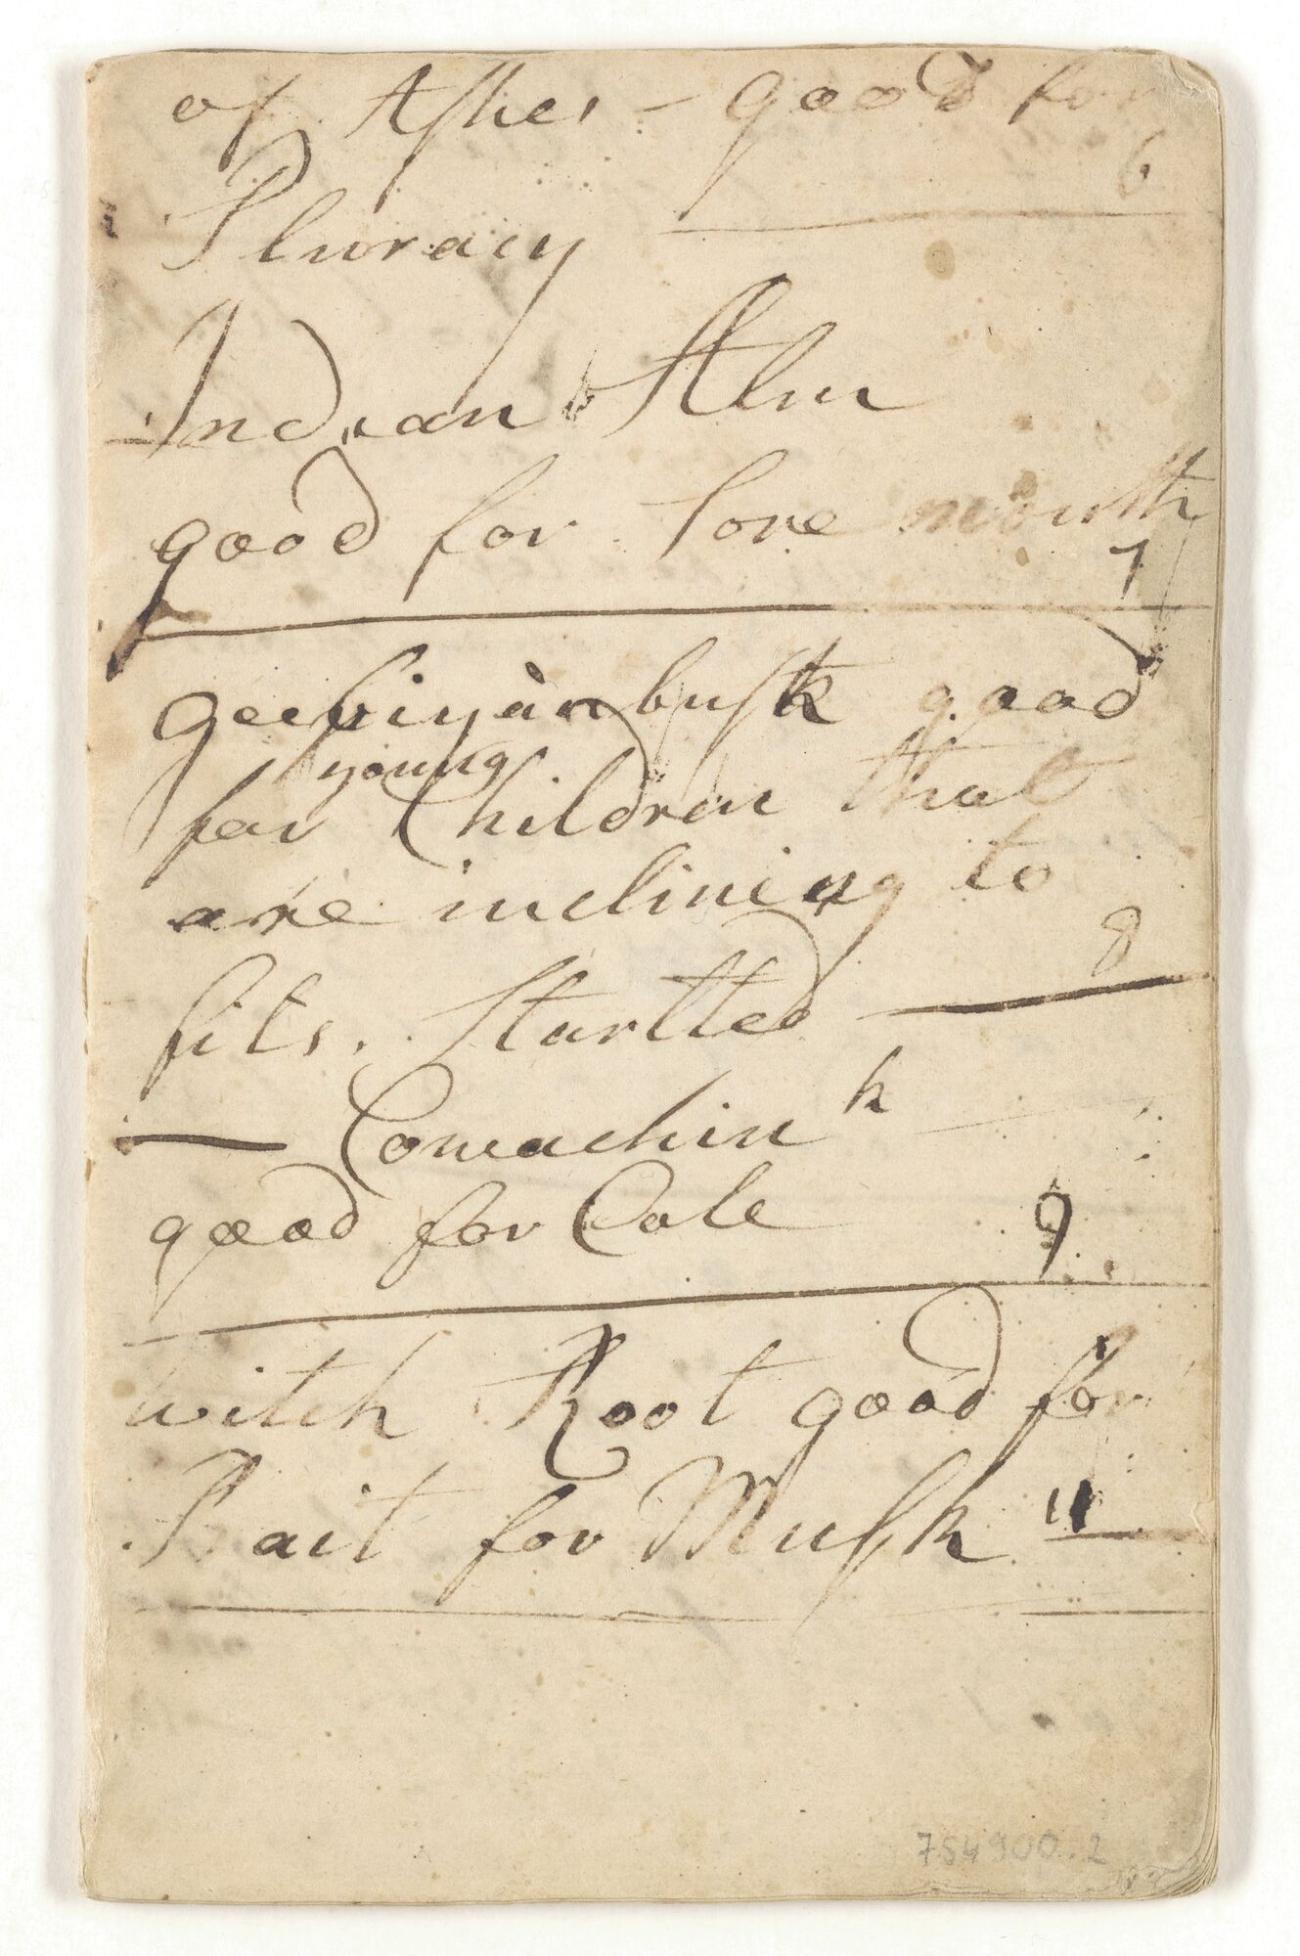 of Ashes - good for
6
Pluracy
Indian Alm
good for Sore mouth
7
bush good
young
for Children that
are inclining to
8
fits. Startted
h
good for Cole 9
witch Root good for
Bait for Mush 11
754900.2